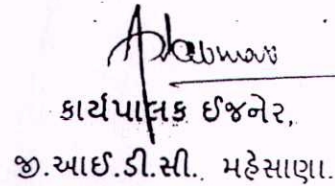 કાર્યપાલક ઈજનેર,
જી.આઈ.ડી.સી., મહેસાણા.